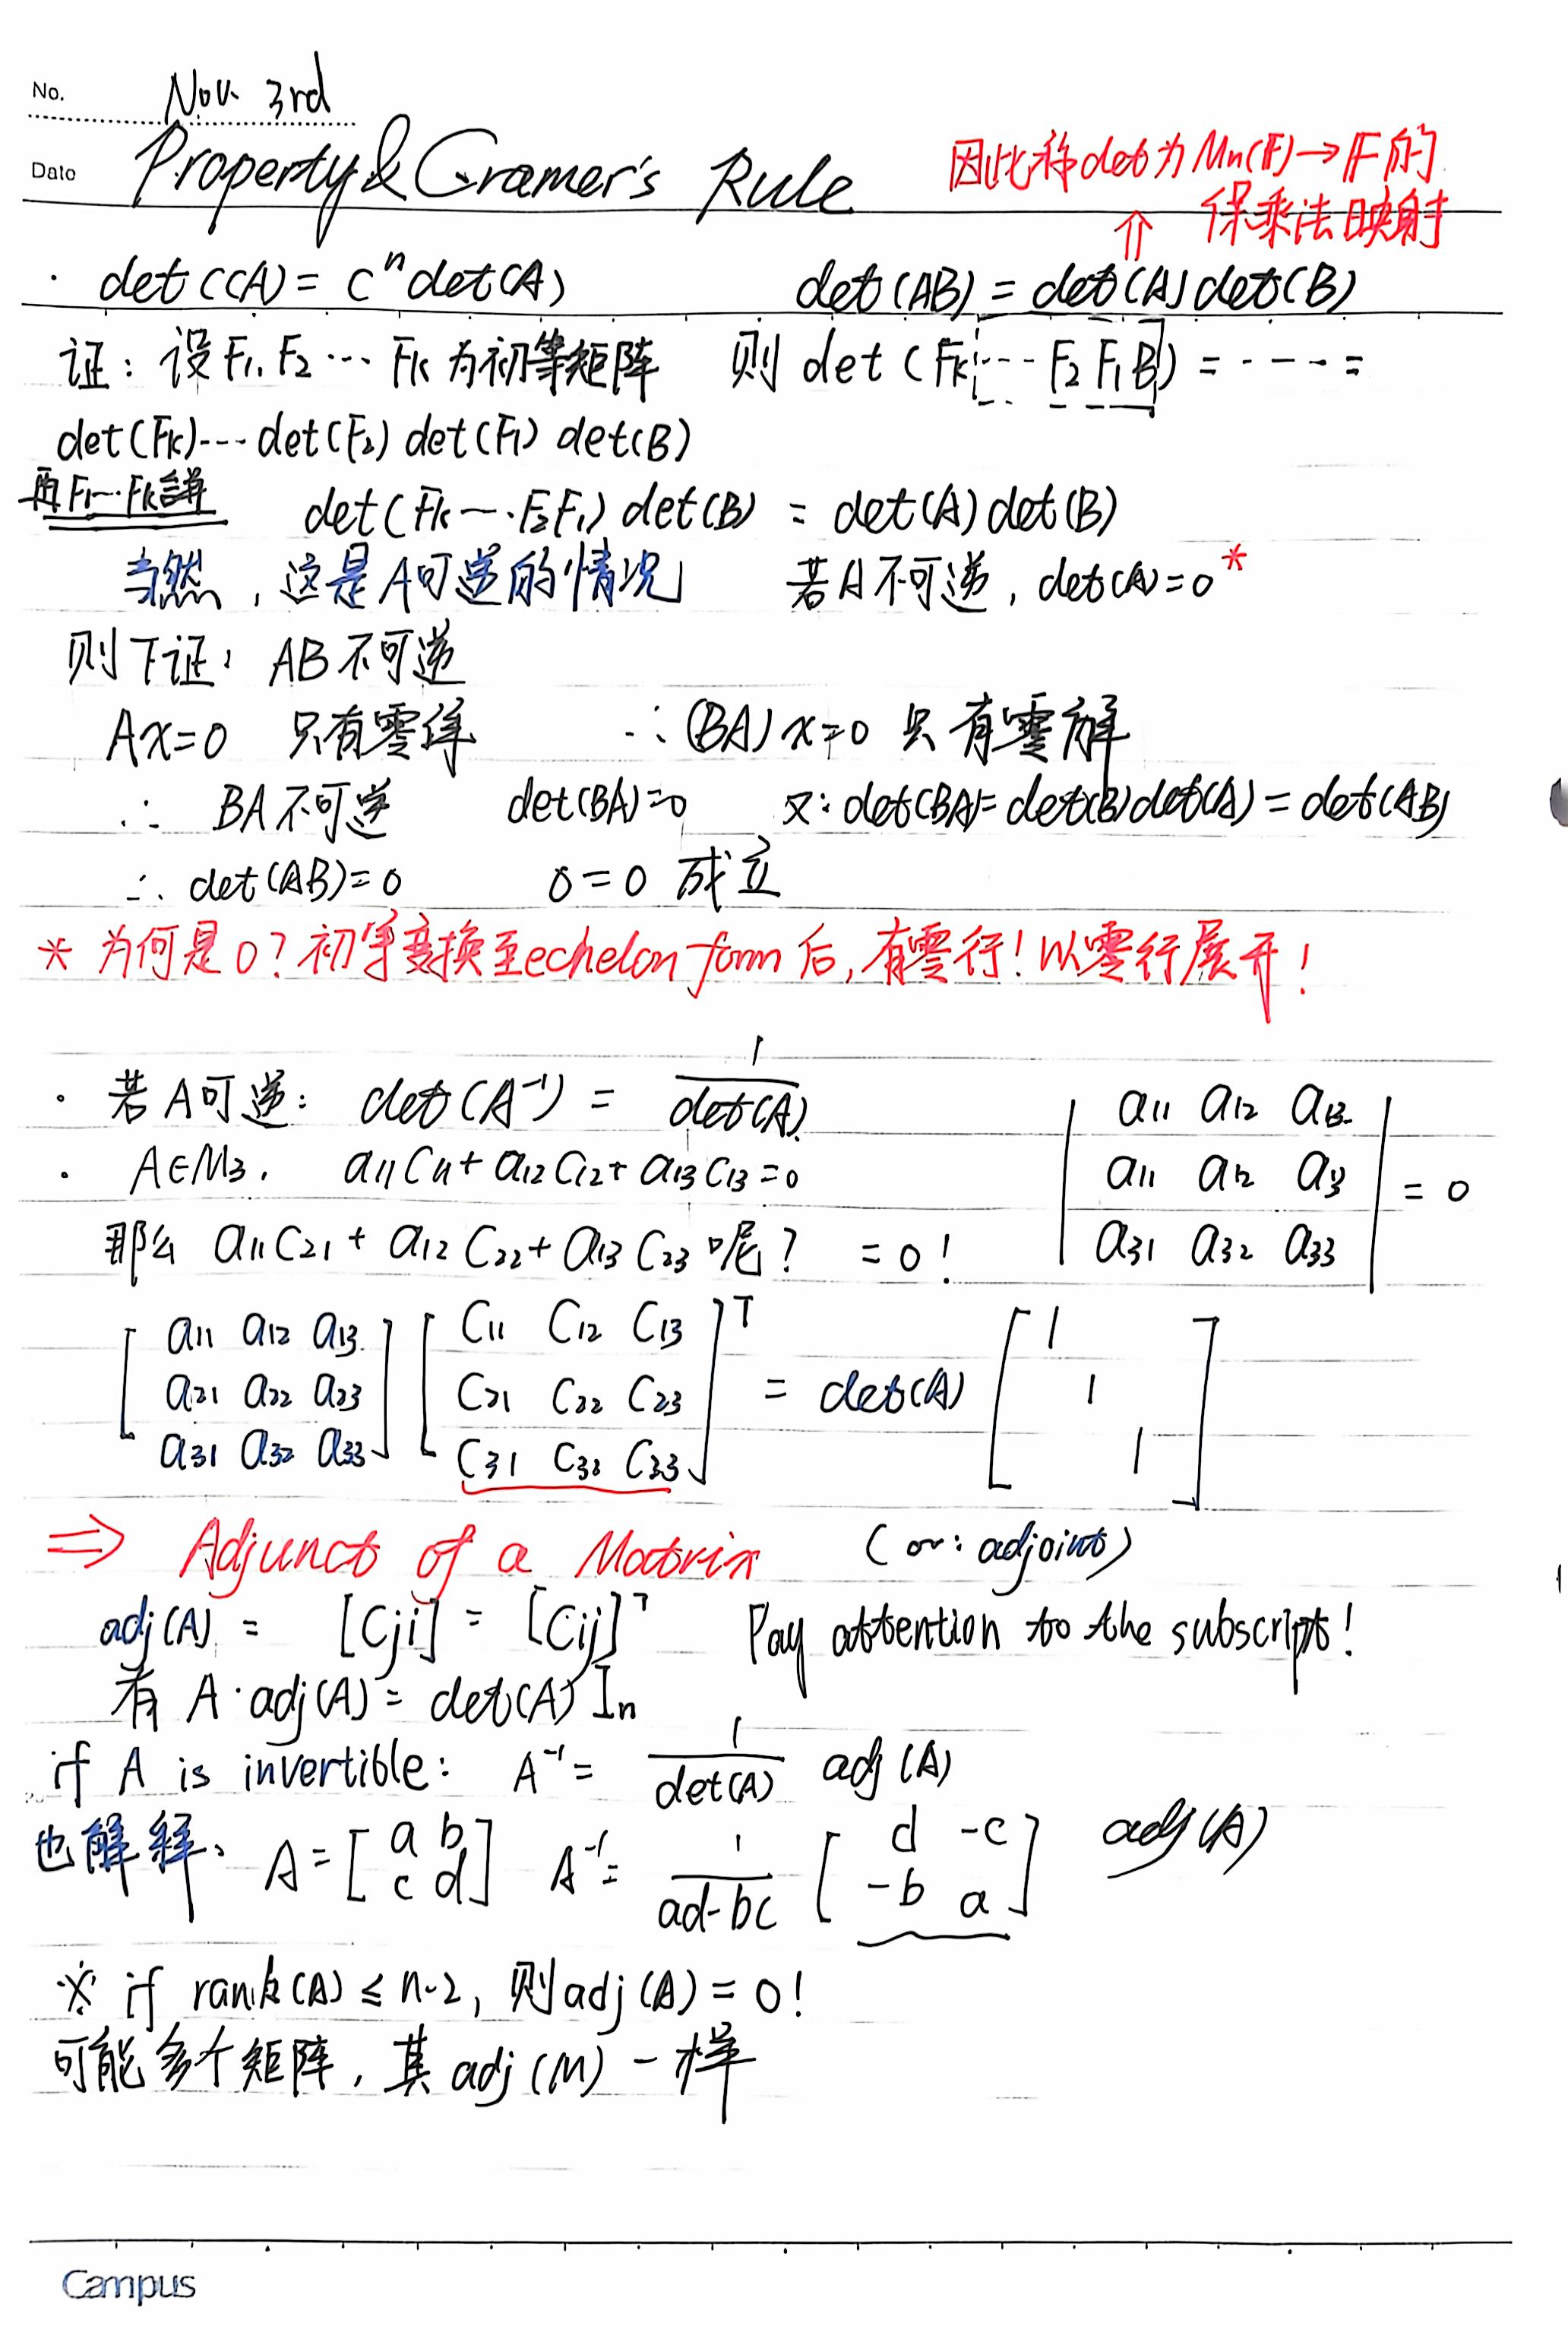 No. Nov. 3rd
Date Property & Cramer's Rule
因此称det为Mn(F)→F的
保乘法映射
⇑
· det(cA) = cⁿdet(A) det(AB) = det(A)det(B)
证：设F₁, F₂ … Fk 为初等矩阵 则 det(Fk … F₂F₁B) = ---- =
det(Fk)---det(F₂) det(F₁) det(B)
再F₁…Fk合并 det(Fk … F₂F₁) det(B) = det(A)det(B)
当然，这是A可逆的情况 若A不可逆，det(A)=0*
则下证：AB不可逆
Ax=0 只有零解 ∴(BA)x=0 只有零解
∴ BA不可逆 det(BA)=0 又∵det(BA)=det(B)det(A)=det(AB)
∴ det(AB)=0 0=0 成立
* 为何是0？初等变换至echelon form后，有零行！以零行展开！
· 若A可逆：det(A⁻¹) = 1/det(A)
· A∈M₃, a₁₁C₁₁+a₁₂C₁₂+a₁₃C₁₃=0
那么 a₁₁C₂₁+a₁₂C₂₂+a₁₃C₂₃呢？ =0!
| a₁₁ a₁₂ a₁₃ |
| a₁₁ a₁₂ a₁₃ | = 0
| a₃₁ a₃₂ a₃₃ |
[a₁₁ a₁₂ a₁₃] [C₁₁ C₁₂ C₁₃]ᵀ [1 ]
[a₂₁ a₂₂ a₂₃] [C₂₁ C₂₂ C₂₃] = det(A) [ 1 ]
[a₃₁ a₃₂ a₃₃] [C₃₁ C₃₂ C₃₃] [ 1]
⇒ Adjunct of a Matrix (or: adjoint)
adj(A) = [Cji] = [Cij]ᵀ Pay attention to the subscript!
有 A·adj(A) = det(A) In
if A is invertible: A⁻¹ = 1/det(A) adj(A)
也解释、A = [a b] A⁻¹ = 1/(ad-bc) [d -c] adj(A)
[c d] [-b a]
※ if rank(A) ≤ n-2, 则adj(A) = 0!
可能多个矩阵，其adj(M)一样
Campus